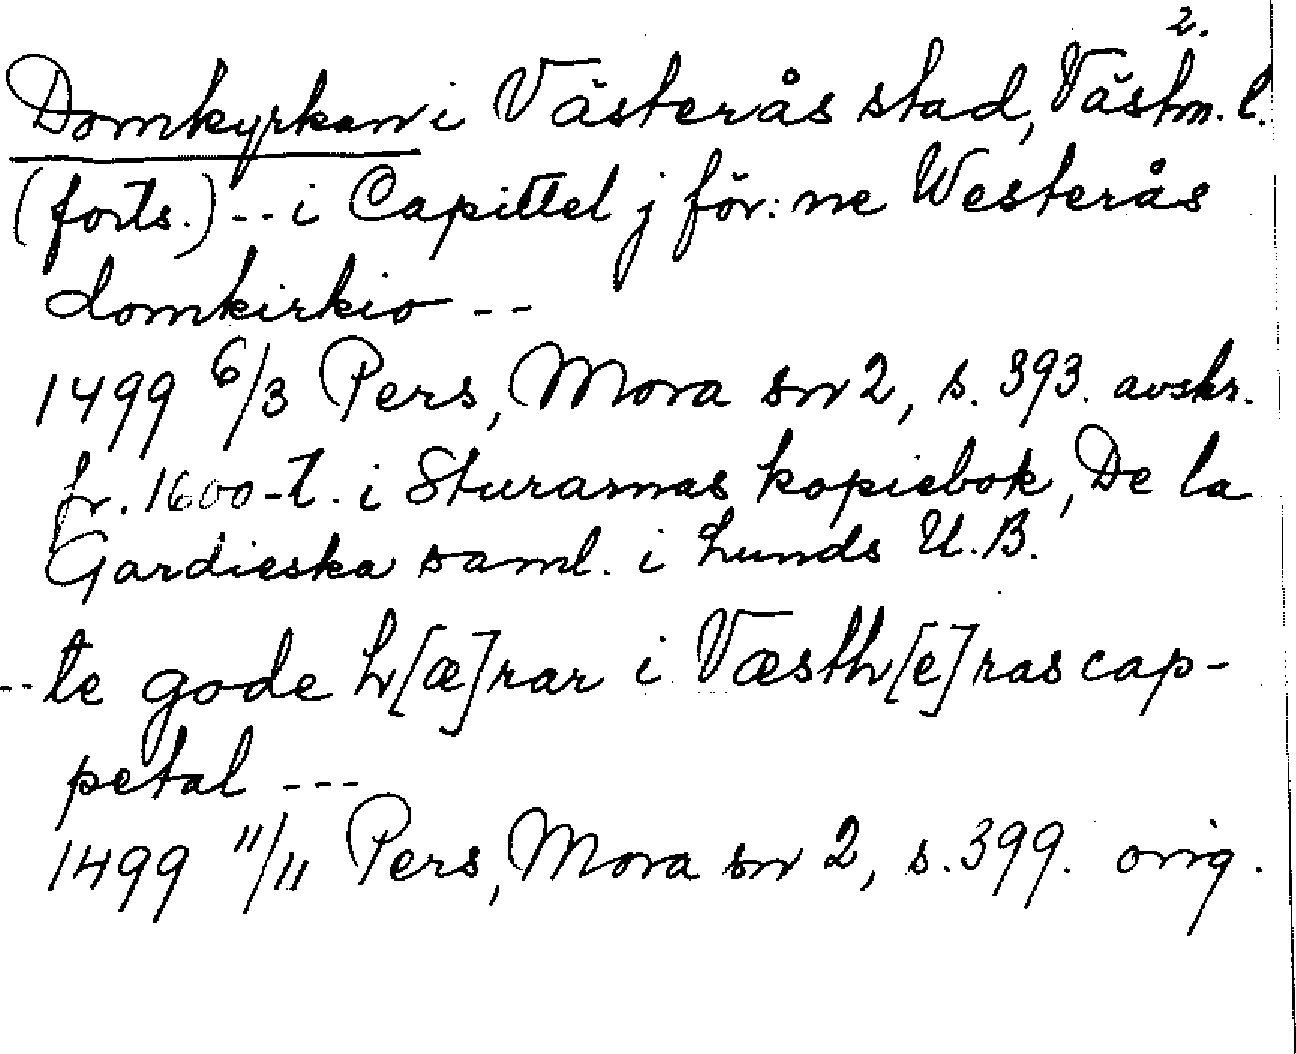 2.
Domkyrkan i Västerås stad, Västm. l.
(forts.) -- i Capittel j för: ne Westerås
domkirkio --
1499 6/3 Pers, Mora sn 2, s. 393. avskr.
fr. 1600-t. i Sturarnas kopiebok, De la
Gardieska saml. i Lunds U.B.
-- te gode h[æ]rar i Væsth[e]ras cap-
petal ---
1499 11/11 Pers, Mora sn 2, s. 399. orig.